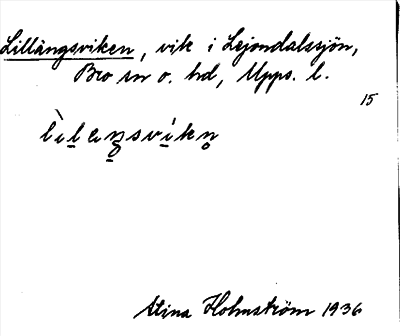 Lillängsviken, vik i Lejondalssjön,
Bro sn o. hd, Upps. l.
15
lìlęŋsvíkn̥
Stina Holmström 1936